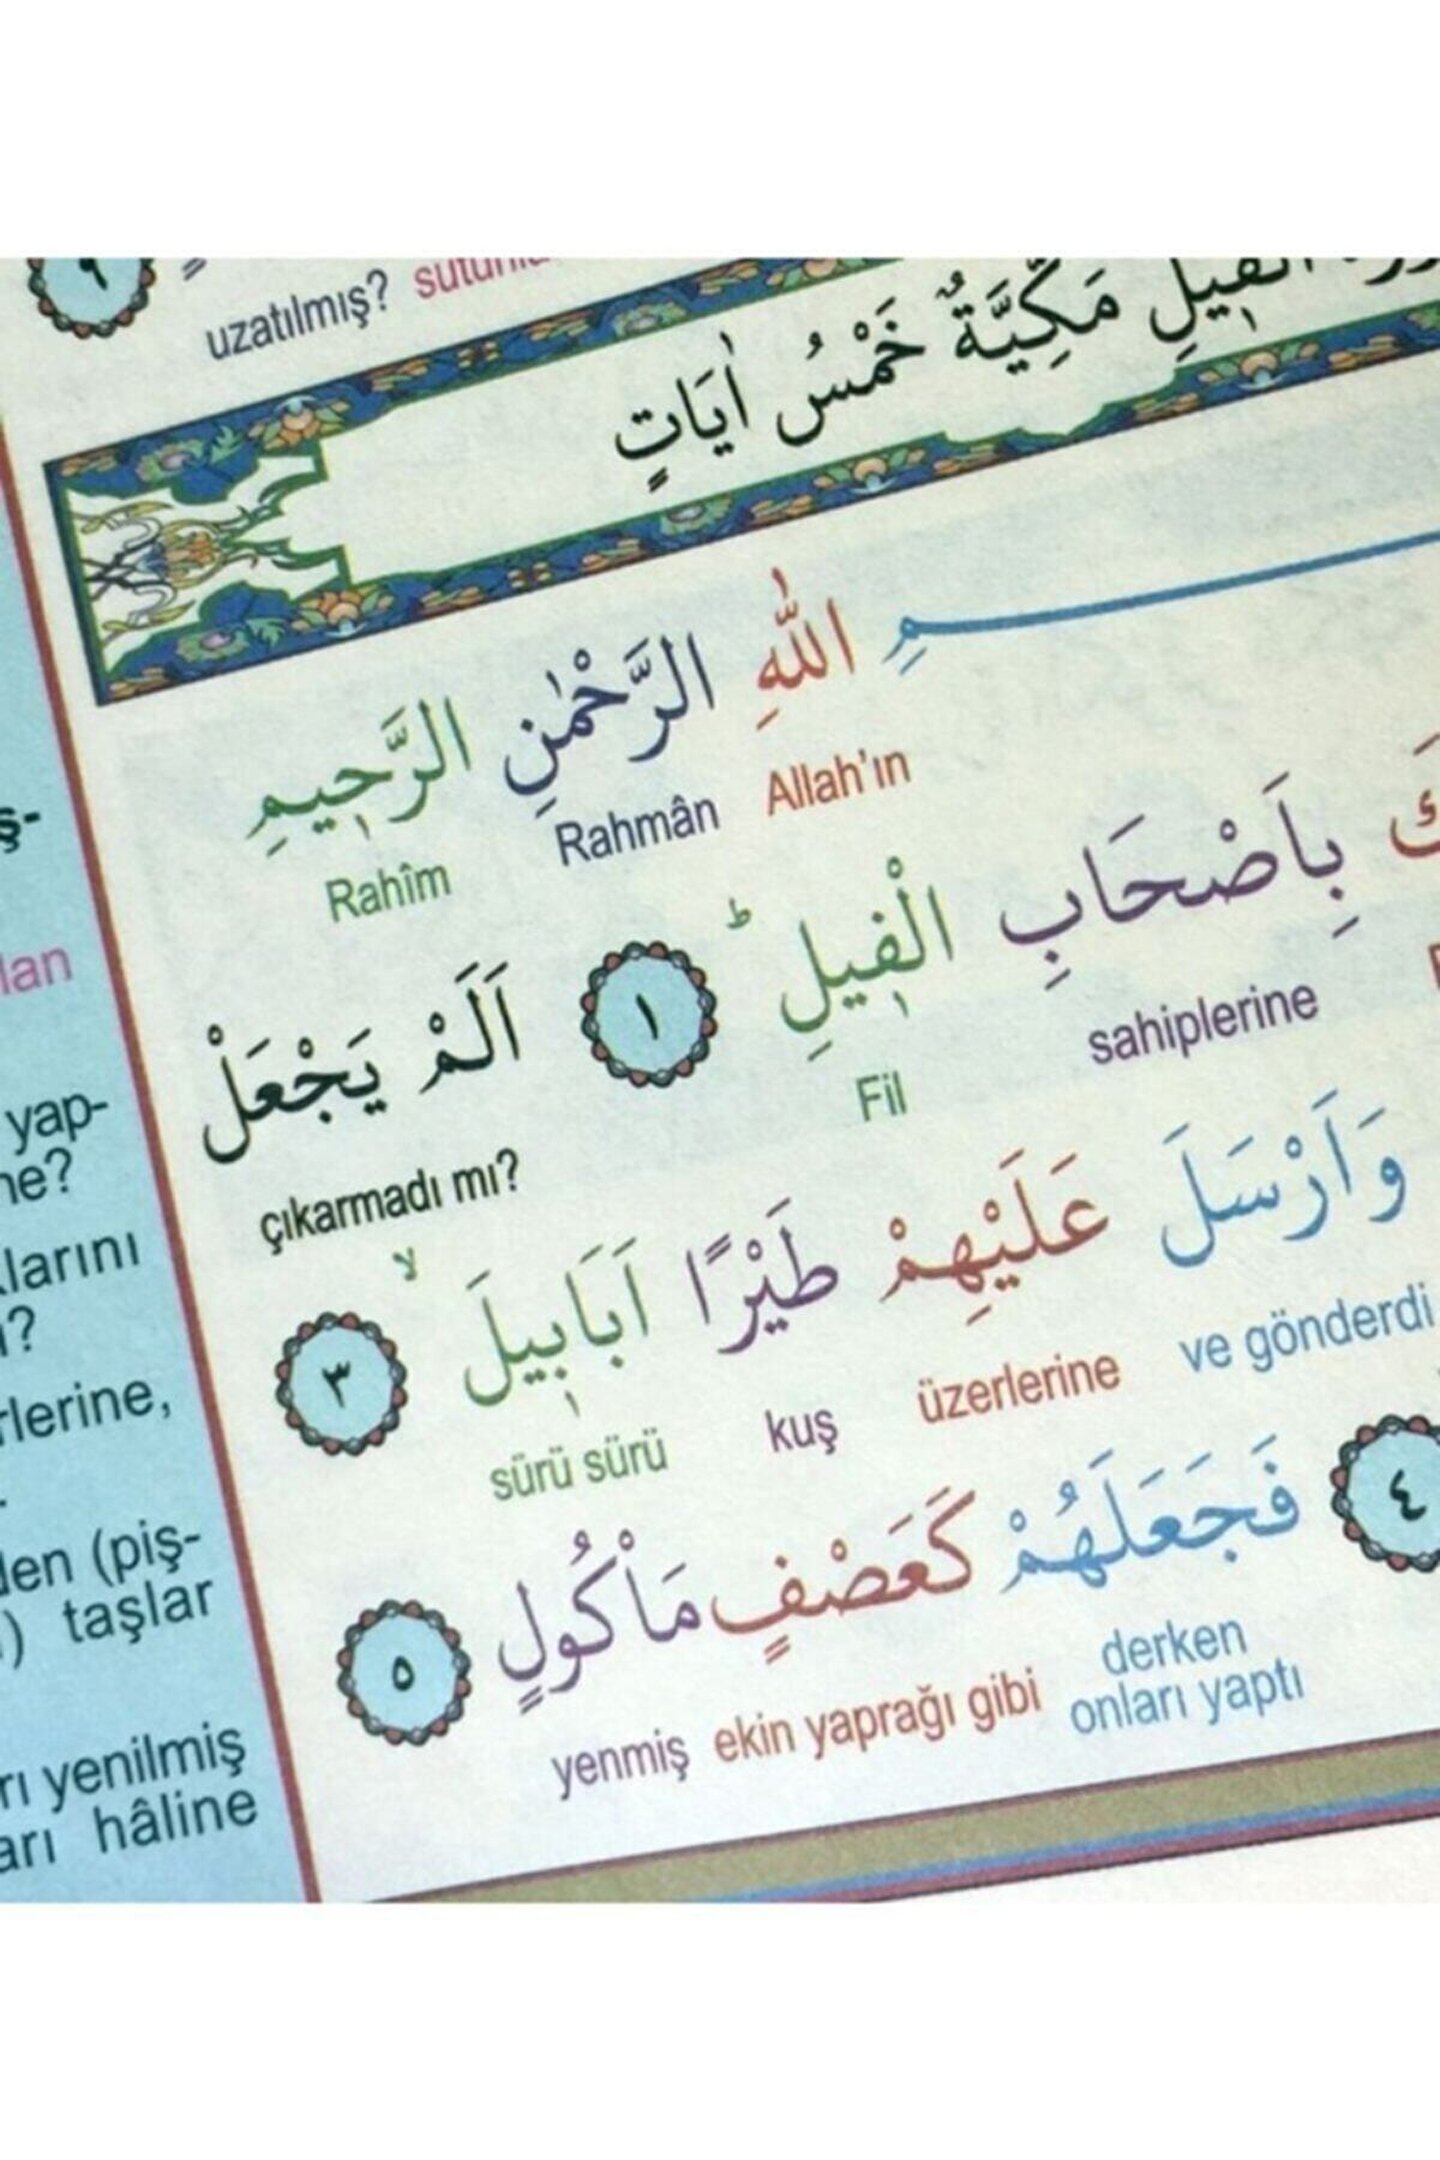 ٩
uzatılmış?
الْفٖيلِ مَكِّيَّةٌ خَمْسُ اٰيَاتٍ
ـــمِ اللّٰهِ الرَّحْمٰنِ الرَّحٖيمِ
Allah’ın Rahmân Rahîm
كَ بِاَصْحَابِ الْفٖيلِؕ ١ اَلَمْ يَجْعَلْ
sahiplerine Fil çıkarmadı mı?
وَاَرْسَلَ عَلَيْهِمْ طَيْرًا اَبَابٖيلَۙ ٣
ve gönderdi üzerlerine kuş sürü sürü
٤ فَجَعَلَهُمْ كَعَصْفٍ مَأْكُولٍ ٥
derken onları yaptı ekin yaprağı gibi yenmiş
ş-
lan
yap-
ne?
larını
?
rlerine,
den (piş-
) taşlar
rı yenilmiş
arı hâline